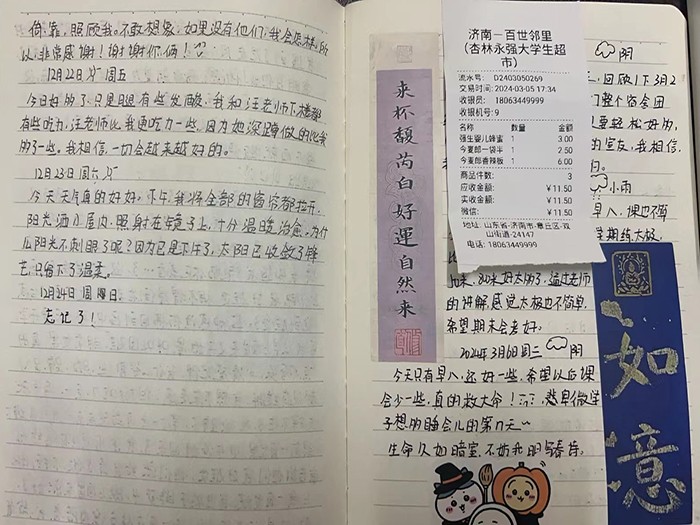 倚靠,照顾我,不敢想象,如果没有他们,我会怎样,所
以,非常感谢!谢谢你俩!
12月22日 周五
今日好的了,只是腿有些发酸,我和汪老师下楼都
有些吃力,汪老师比我更吃力一些,因为她深蹲做的比我
的了一些。我相信,一切会越来越好的。
12月23日 周六
今天天气真的好好,下午我将全部的窗帘都拉开,
阳光洒入屋内,照射在镜子上,十分温暖治愈,为什
么阳光不刺眼了呢?因为已是下午了,太阳已收敛了锋
芒,只留下了温柔。
12月24日 周日
忘记了!
来杯馥芮白 好運自然来
济南一百世邻里
(杏林永强大学生超
市)
流水号: D2403050269
交易时间: 2024-03-05 17:34
收银员: 18063449999
收银机号: 9
名称 数量 金额
强生婴儿蜂蜜 1 3.00
今麦郎一袋半 1 2.50
今麦郎香辣板 1 6.00
商品件数: 3
应收金额: ¥11.50
实收金额: ¥11.50
微信: ¥11.50
地址: 山东省-济南市-章丘区-双
山街道-24147
电话: 18063449999
阴
回顾1下3月2
们整个宿舍团
是要轻松好的,
的室友,我相信,
日。
小雨
早八,课也不算
学期练太极,
10来,80来好太的了,通过老师
的讲解,感觉太极也不简单,
希望期末会考好。
2024年3月6日周三 阴
今天只有早八,还好一些,希望以后课
会少一些,真的救大命!
想的睡会儿的第n天~
生命久如暗室,不妨我明写春诗。
如意